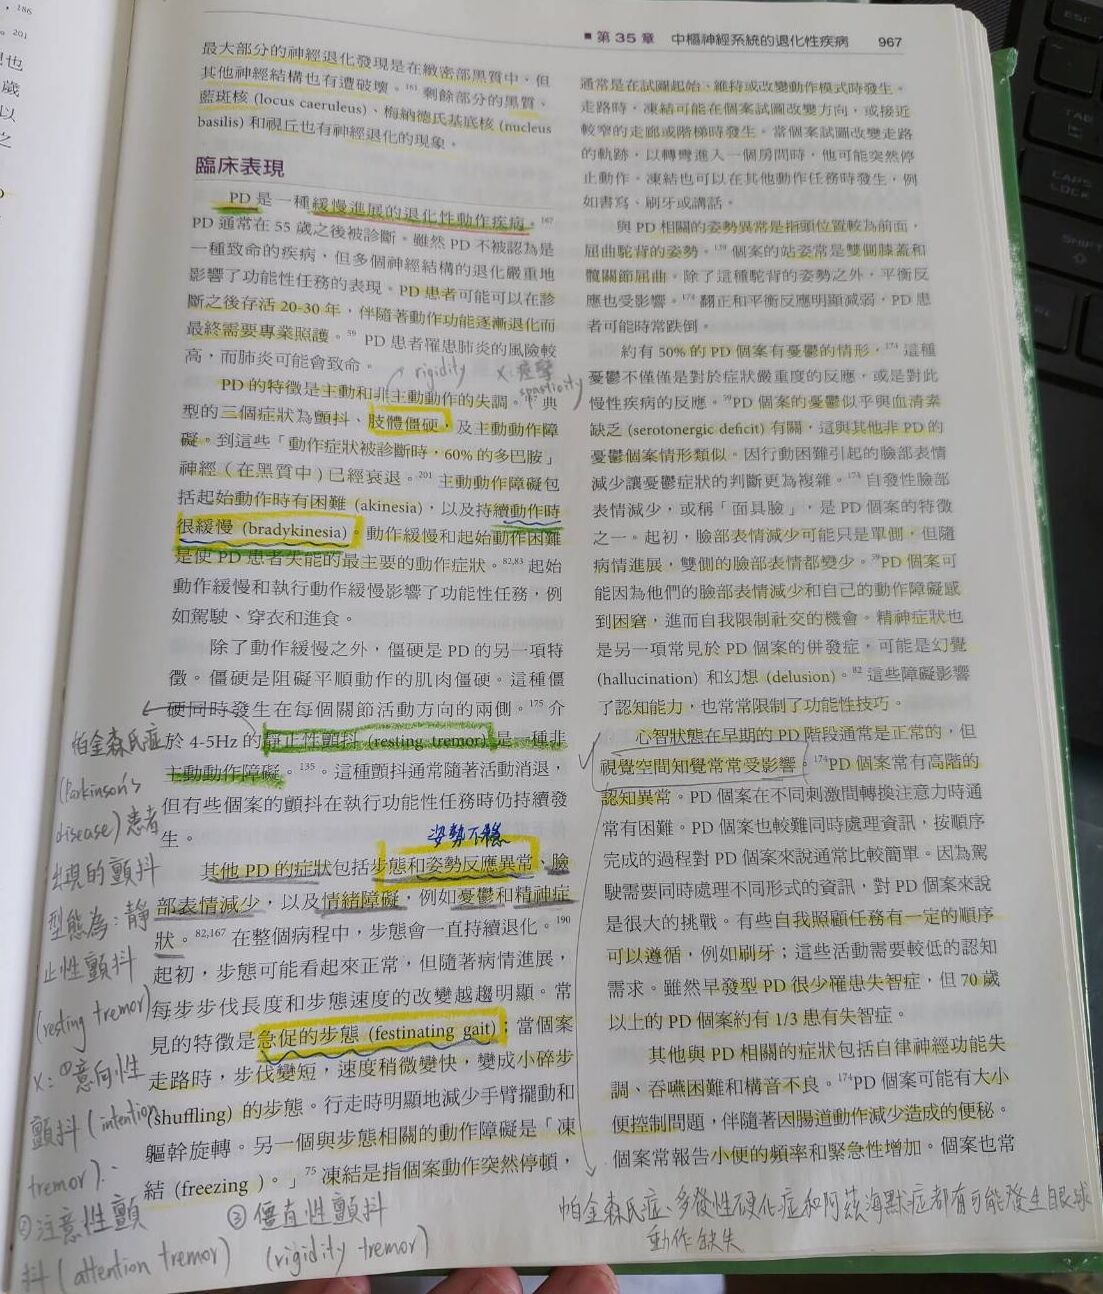 186
201
也
歲
以
之
■ 第 35 章 中樞神經系統的退化性疾病 967
最大部分的神經退化發現是在緻密部黑質中，但
其他神經結構也有遭破壞。161 剩餘部分的黑質、
藍斑核 (locus caeruleus)、梅納德氏基底核 (nucleus
basilis) 和視丘也有神經退化的現象。
臨床表現
PD 是一種緩慢進展的退化性動作疾病。167
PD 通常在 55 歲之後被診斷。雖然 PD 不被認為是
一種致命的疾病，但多個神經結構的退化嚴重地
影響了功能性任務的表現。PD 患者可能可以在診
斷之後存活 20-30 年，伴隨著動作功能逐漸退化而
最終需要專業照護。59 PD 患者罹患肺炎的風險較
高，而肺炎可能會致命。
rigidity x 痙攣
spasticity
PD 的特徵是主動和非主動動作的失調。典
型的三個症狀為顫抖、肢體僵硬，及主動動作障
礙。到這些「動作症狀被診斷時，60% 的多巴胺」
神經（在黑質中）已經衰退。201 主動動作障礙包
括起始動作時有困難 (akinesia)，以及持續動作時
很緩慢 (bradykinesia)。動作緩慢和起始動作困難
是使 PD 患者失能的最主要的動作症狀。82,83 起始
動作緩慢和執行動作緩慢影響了功能性任務，例
如駕駛、穿衣和進食。
除了動作緩慢之外，僵硬是 PD 的另一項特
徵。僵硬是阻礙平順動作的肌肉僵硬。這種僵
硬同時發生在每個關節活動方向的兩側。175 介
於 4-5Hz 的靜止性顫抖 (resting tremor) 是一種非
主動動作障礙。135。這種顫抖通常隨著活動消退，
但有些個案的顫抖在執行功能性任務時仍持續發
生。
姿勢不穩
其他 PD 的症狀包括步態和姿勢反應異常、臉
部表情減少，以及情緒障礙，例如憂鬱和精神症
狀。82,167 在整個病程中，步態會一直持續退化。190
起初，步態可能看起來正常，但隨著病情進展，
每步步伐長度和步態速度的改變越趨明顯。常
見的特徵是急促的步態 (festinating gait)；當個案
走路時，步伐變短，速度稍微變快，變成小碎步
(shuffling) 的步態。行走時明顯地減少手臂擺動和
軀幹旋轉。另一個與步態相關的動作障礙是「凍
結 (freezing )。」75 凍結是指個案動作突然停頓，
帕金森氏症
(Parkinson's
disease) 患者
出現的顫抖
型態為：靜
止性顫抖
(resting tremor)
x：①意向性
顫抖 (intention
tremor)：
②注意性顫
抖 (attention tremor)
③僵直性顫抖
(rigidity tremor)
通常是在試圖起始、維持或改變動作模式時發生。
走路時，凍結可能在個案試圖改變方向，或接近
較窄的走廊或階梯時發生。當個案試圖改變走路
的軌跡，以轉彎進入一個房間時，他可能突然停
止動作。凍結也可以在其他動作任務時發生，例
如書寫、刷牙或講話。
與 PD 相關的姿勢異常是指頭位置較為前面，
屈曲駝背的姿勢。179 個案的站姿常是雙側膝蓋和
髖關節屈曲。除了這種駝背的姿勢之外，平衡反
應也受影響。174 翻正和平衡反應明顯減弱，PD 患
者可能時常跌倒。
約有 50% 的 PD 個案有憂鬱的情形，174 這種
憂鬱不僅僅是對於症狀嚴重度的反應，或是對此
慢性疾病的反應。59PD 個案的憂鬱似乎與血清素
缺乏 (serotonergic deficit) 有關，這與其他非 PD 的
憂鬱個案情形類似。因行動困難引起的臉部表情
減少讓憂鬱症狀的判斷更為複雜。174 自發性臉部
表情減少，或稱「面具臉」，是 PD 個案的特徵
之一。起初，臉部表情減少可能只是單側，但隨
病情進展，雙側的臉部表情都變少。59PD 個案可
能因為他們的臉部表情減少和自己的動作障礙感
到困窘，進而自我限制社交的機會。精神症狀也
是另一項常見於 PD 個案的併發症，可能是幻覺
(hallucination) 和幻想 (delusion)。82 這些障礙影響
了認知能力，也常常限制了功能性技巧。
心智狀態在早期的 PD 階段通常是正常的，但
視覺空間知覺常常受影響。174PD 個案常有高階的
認知異常。PD 個案在不同刺激間轉換注意力時通
常有困難。PD 個案也較難同時處理資訊，按順序
完成的過程對 PD 個案來說通常比較簡單。因為駕
駛需要同時處理不同形式的資訊，對 PD 個案來說
是很大的挑戰。有些自我照顧任務有一定的順序
可以遵循，例如刷牙；這些活動需要較低的認知
需求。雖然早發型 PD 很少罹患失智症，但 70 歲
以上的 PD 個案約有 1/3 患有失智症。
其他與 PD 相關的症狀包括自律神經功能失
調、吞嚥困難和構音不良。174PD 個案可能有大小
便控制問題，伴隨著因腸道動作減少造成的便秘。
個案常報告小便的頻率和緊急性增加。個案也常
帕金森氏症、多發性硬化症和阿茲海默症都有可能發生眼球
動作缺失